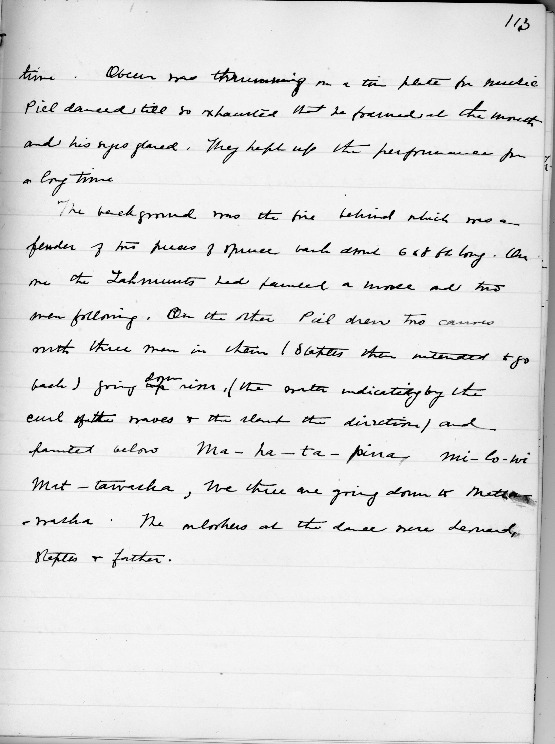 113
time. was thrumming on a tin plate for music
Piel danced till so exhausted that he foamed at the mouth
and his eyes glared. They kept up the performance for
a long time
The background was the fire behind which was a
fender of two pieces of spruce bark about 6 x 8 ft long. On
one the had painted a moose and two
men following. On the other Piel drew two canoes
with three men in them (Steptes then intended to go
back) going down river, (the water indicated by the
curl of the waves & the slant the direction) and
painted below Ma-ha-ta-pina mi-lo-wi
Mat-tawasha, We three are going down to
-washa. The onlookers at the dance were
Steptes & father.